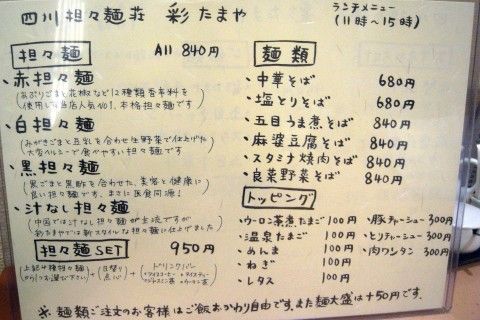 四川担々麺荘 彩 たまや
ランチメニュー
(11時～15時)
担々麺 All 840円
・赤担々麺
(あぶりごまと花椒など12種類香辛料を
使用した当店人気No1.本格担々麺です)
・白担々麺
(みがきごまと豆乳を合わせ生野菜で仕上げた
大変ヘルシーで食べやすい担々麺です
・黒担々麺
(黒ごまと黒酢を合わせた、美容と健康に
良い担々麺です。まさに医食同源!
・汁なし担々麺
(中国では汁なし担々麺が主流ですが
彩たまやでは新スタイルな担々麺に仕上げました)
担々麺SET 950円
(上記4種担々麺からひとつお選び下さい)+(日替り点心)+(ドリンクバー
・アイスコーヒー ・アイスティー
・ジャスミン茶 ・ウーロン茶)
麺類
・中華そば 680円
・塩とりそば 680円
・五目うま煮そば 840円
・麻婆豆腐そば 840円
・スタミナ焼肉そば 840円
・良菜野菜そば 840円
トッピング
・ウーロン茶煮たまご 100円
・温泉たまご 100円
・めんま 100円
・ねぎ 100円
・レタス 100円
・豚チャーシュー 300円
・とりチャーシュー 300円
・肉ワンタン 300円
※麺類ご注文のお客様はご飯おかわり自由です.また麺大盛は+50円です.